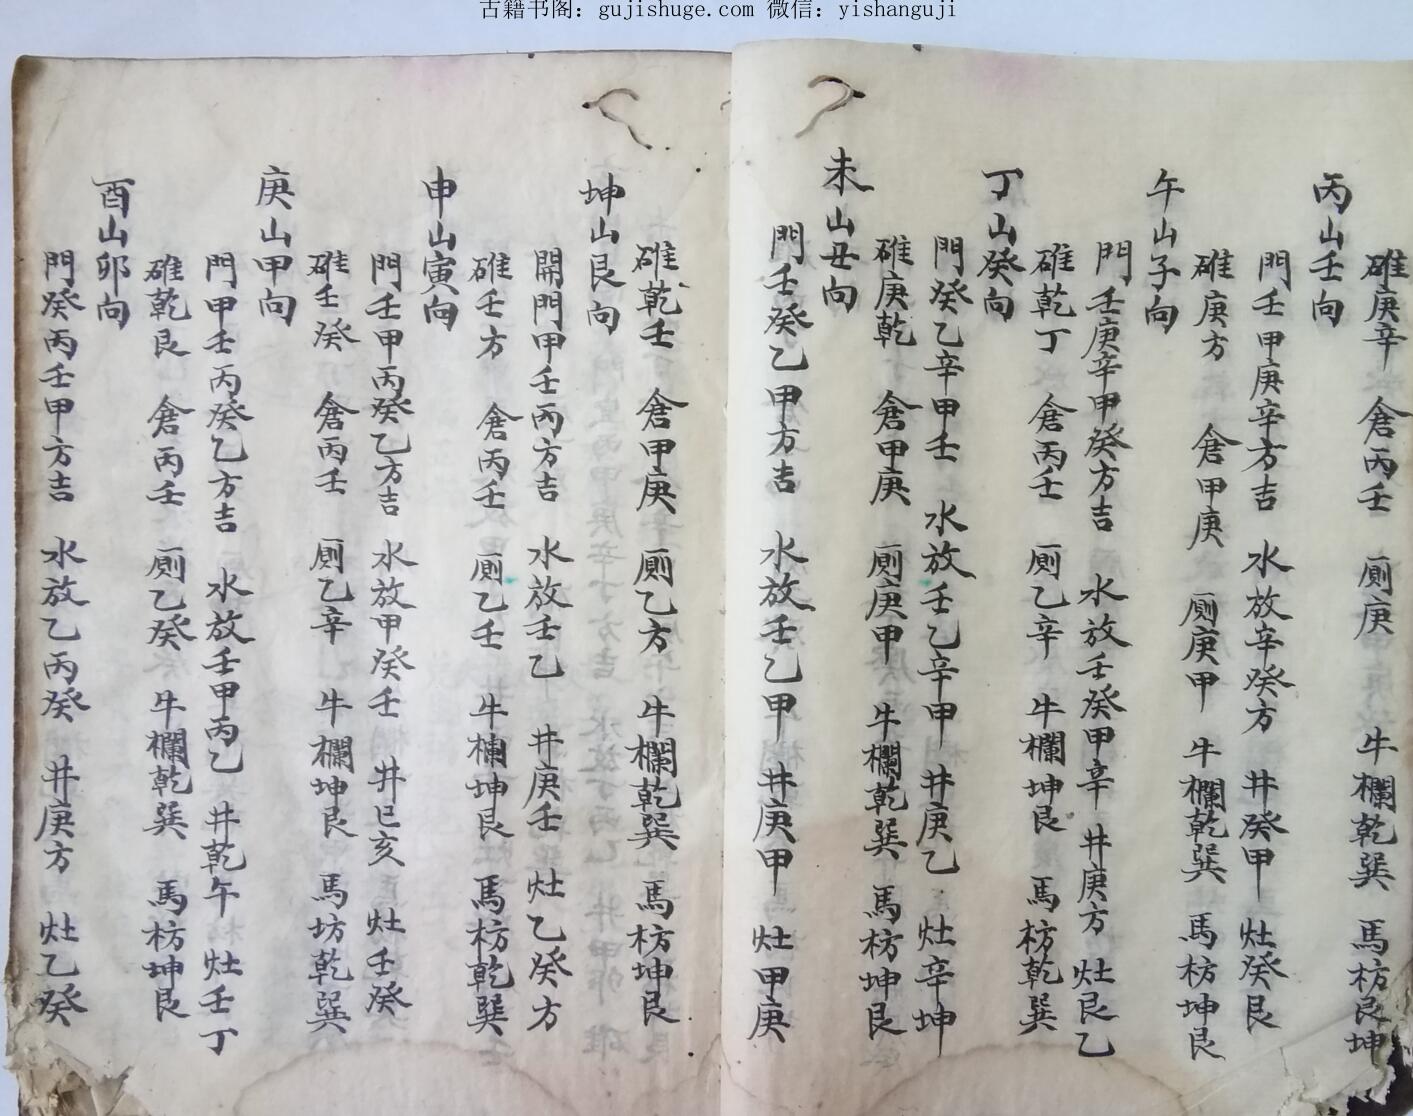 古籍书阁：gujishuge.com 微信：yishanguji
碓庚辛 倉丙壬 厠庚 牛欄乾巽 馬枋艮坤
丙山壬向
門壬甲庚辛方吉 水放辛癸方 井癸甲 灶癸艮
碓庚方 倉甲庚 厠庚甲 牛欄乾巽 馬枋坤艮
午山子向
門壬庚辛甲癸方吉 水放壬癸甲辛 井庚方 灶艮乙
碓乾丁 倉丙壬 厠乙辛 牛欄坤艮 馬枋乾巽
丁山癸向
門癸乙辛甲壬 水放壬乙辛甲 井庚乙 灶辛坤
碓庚乾 倉甲庚 厠庚甲 牛欄乾巽 馬枋坤艮
未山丑向
門壬癸乙甲方吉 水放壬乙甲 井庚甲 灶甲庚
碓乾壬 倉甲庚 厠乙方 牛欄乾巽 馬枋坤艮
坤山艮向
開門甲壬丙方吉 水放壬乙 井庚壬 灶乙癸方
碓壬方 倉丙壬 厠乙壬 牛欄坤艮 馬枋乾巽
申山寅向
門壬甲丙癸乙方吉 水放甲癸壬 井巳亥 灶壬癸
碓壬癸 倉丙壬 厠乙辛 牛欄坤艮 馬坊乾巽
庚山甲向
門甲壬丙癸乙方吉 水放壬甲丙乙 井乾午 灶壬丁
碓乾艮 倉丙壬 厠乙癸 牛欄乾巽 馬枋坤艮
酉山卯向
門癸丙壬甲方吉 水放乙丙癸 井庚方 灶乙癸